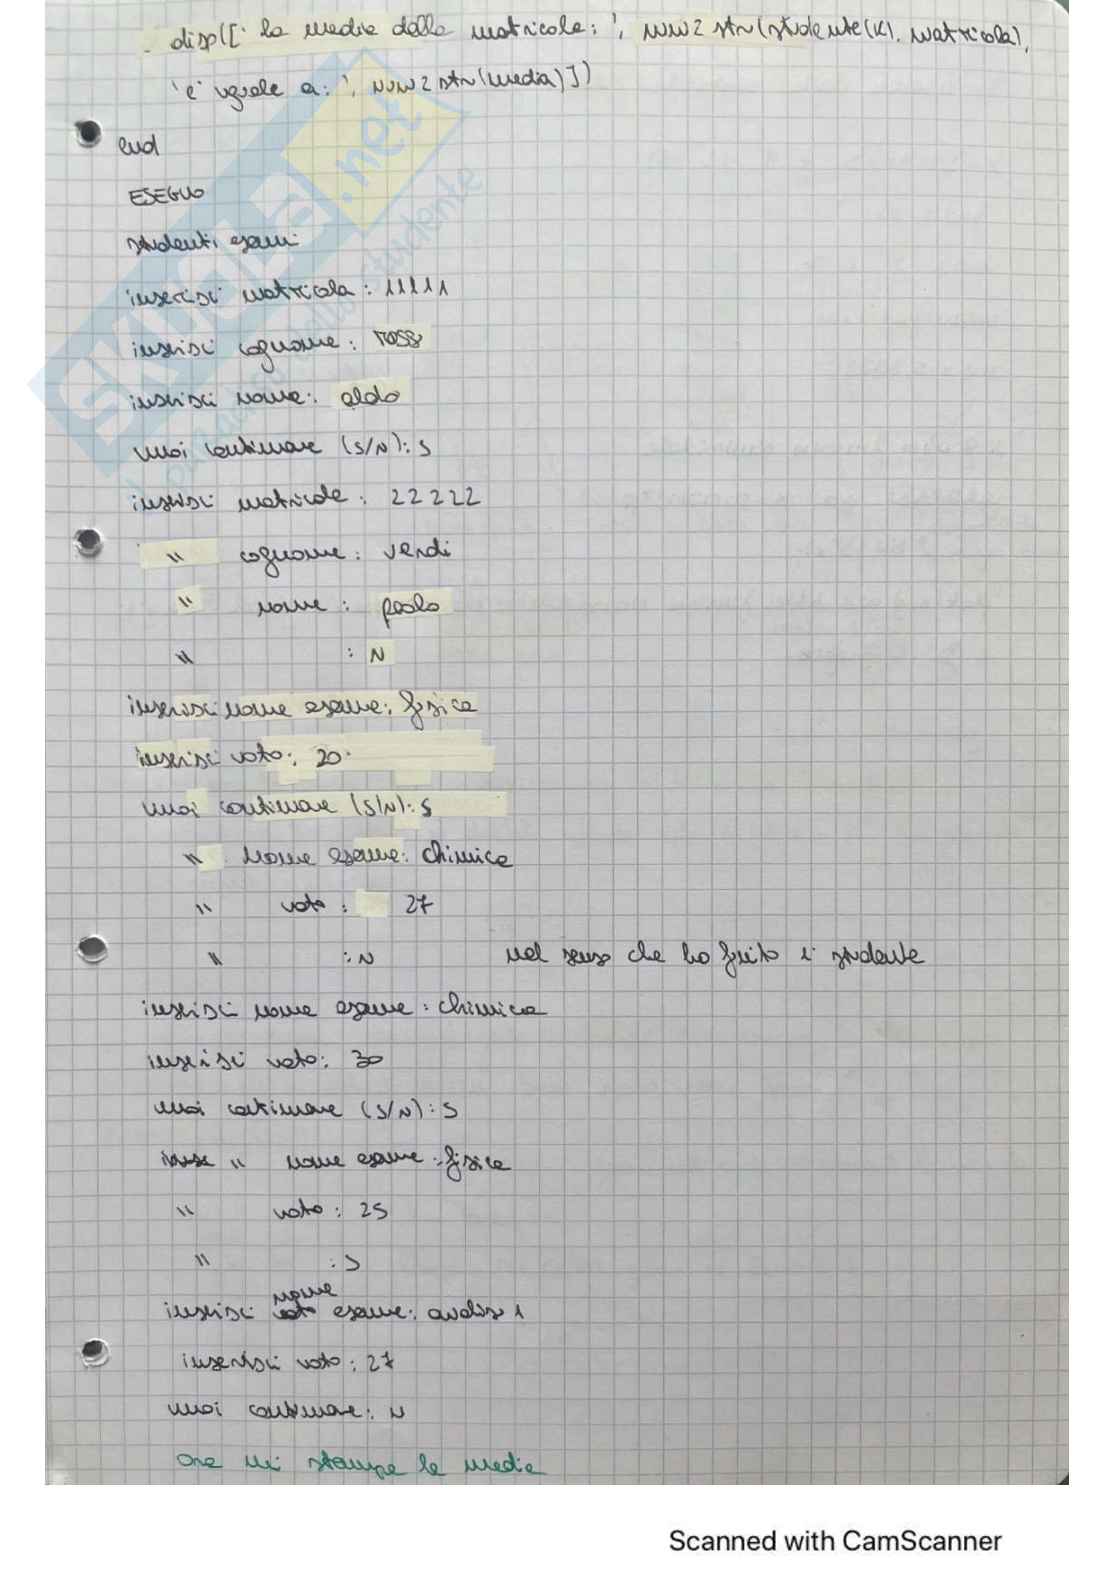 disp(['la media della matricola: ', num2str(studente(k).matricola),
'e' uguale a: ', num2str(media)])
end
ESEGUO
studenti esami
inserisci matricola : 11111
inserisci cognome : rossi
inserisci nome: aldo
vuoi continuare (s/n): s
inserisci matricola : 22222
" cognome : verdi
" nome : paolo
" : N
inserisci nome esame: fisica
inserisci voto: 20
vuoi continuare (s/n): s
" nome esame: chimica
" voto : 27
" : N nel senso che ho finito 1° studente
inserisci nome esame : chimica
inserisci voto: 30
vuoi continuare (s/n) : s
" nome esame : fisica
" voto : 25
" : s
inserisci nome esame: analisi 1
inserisci voto : 27
vuoi continuare: N
ora mi stampa la media
SKUOLA.net
Scanned with CamScanner